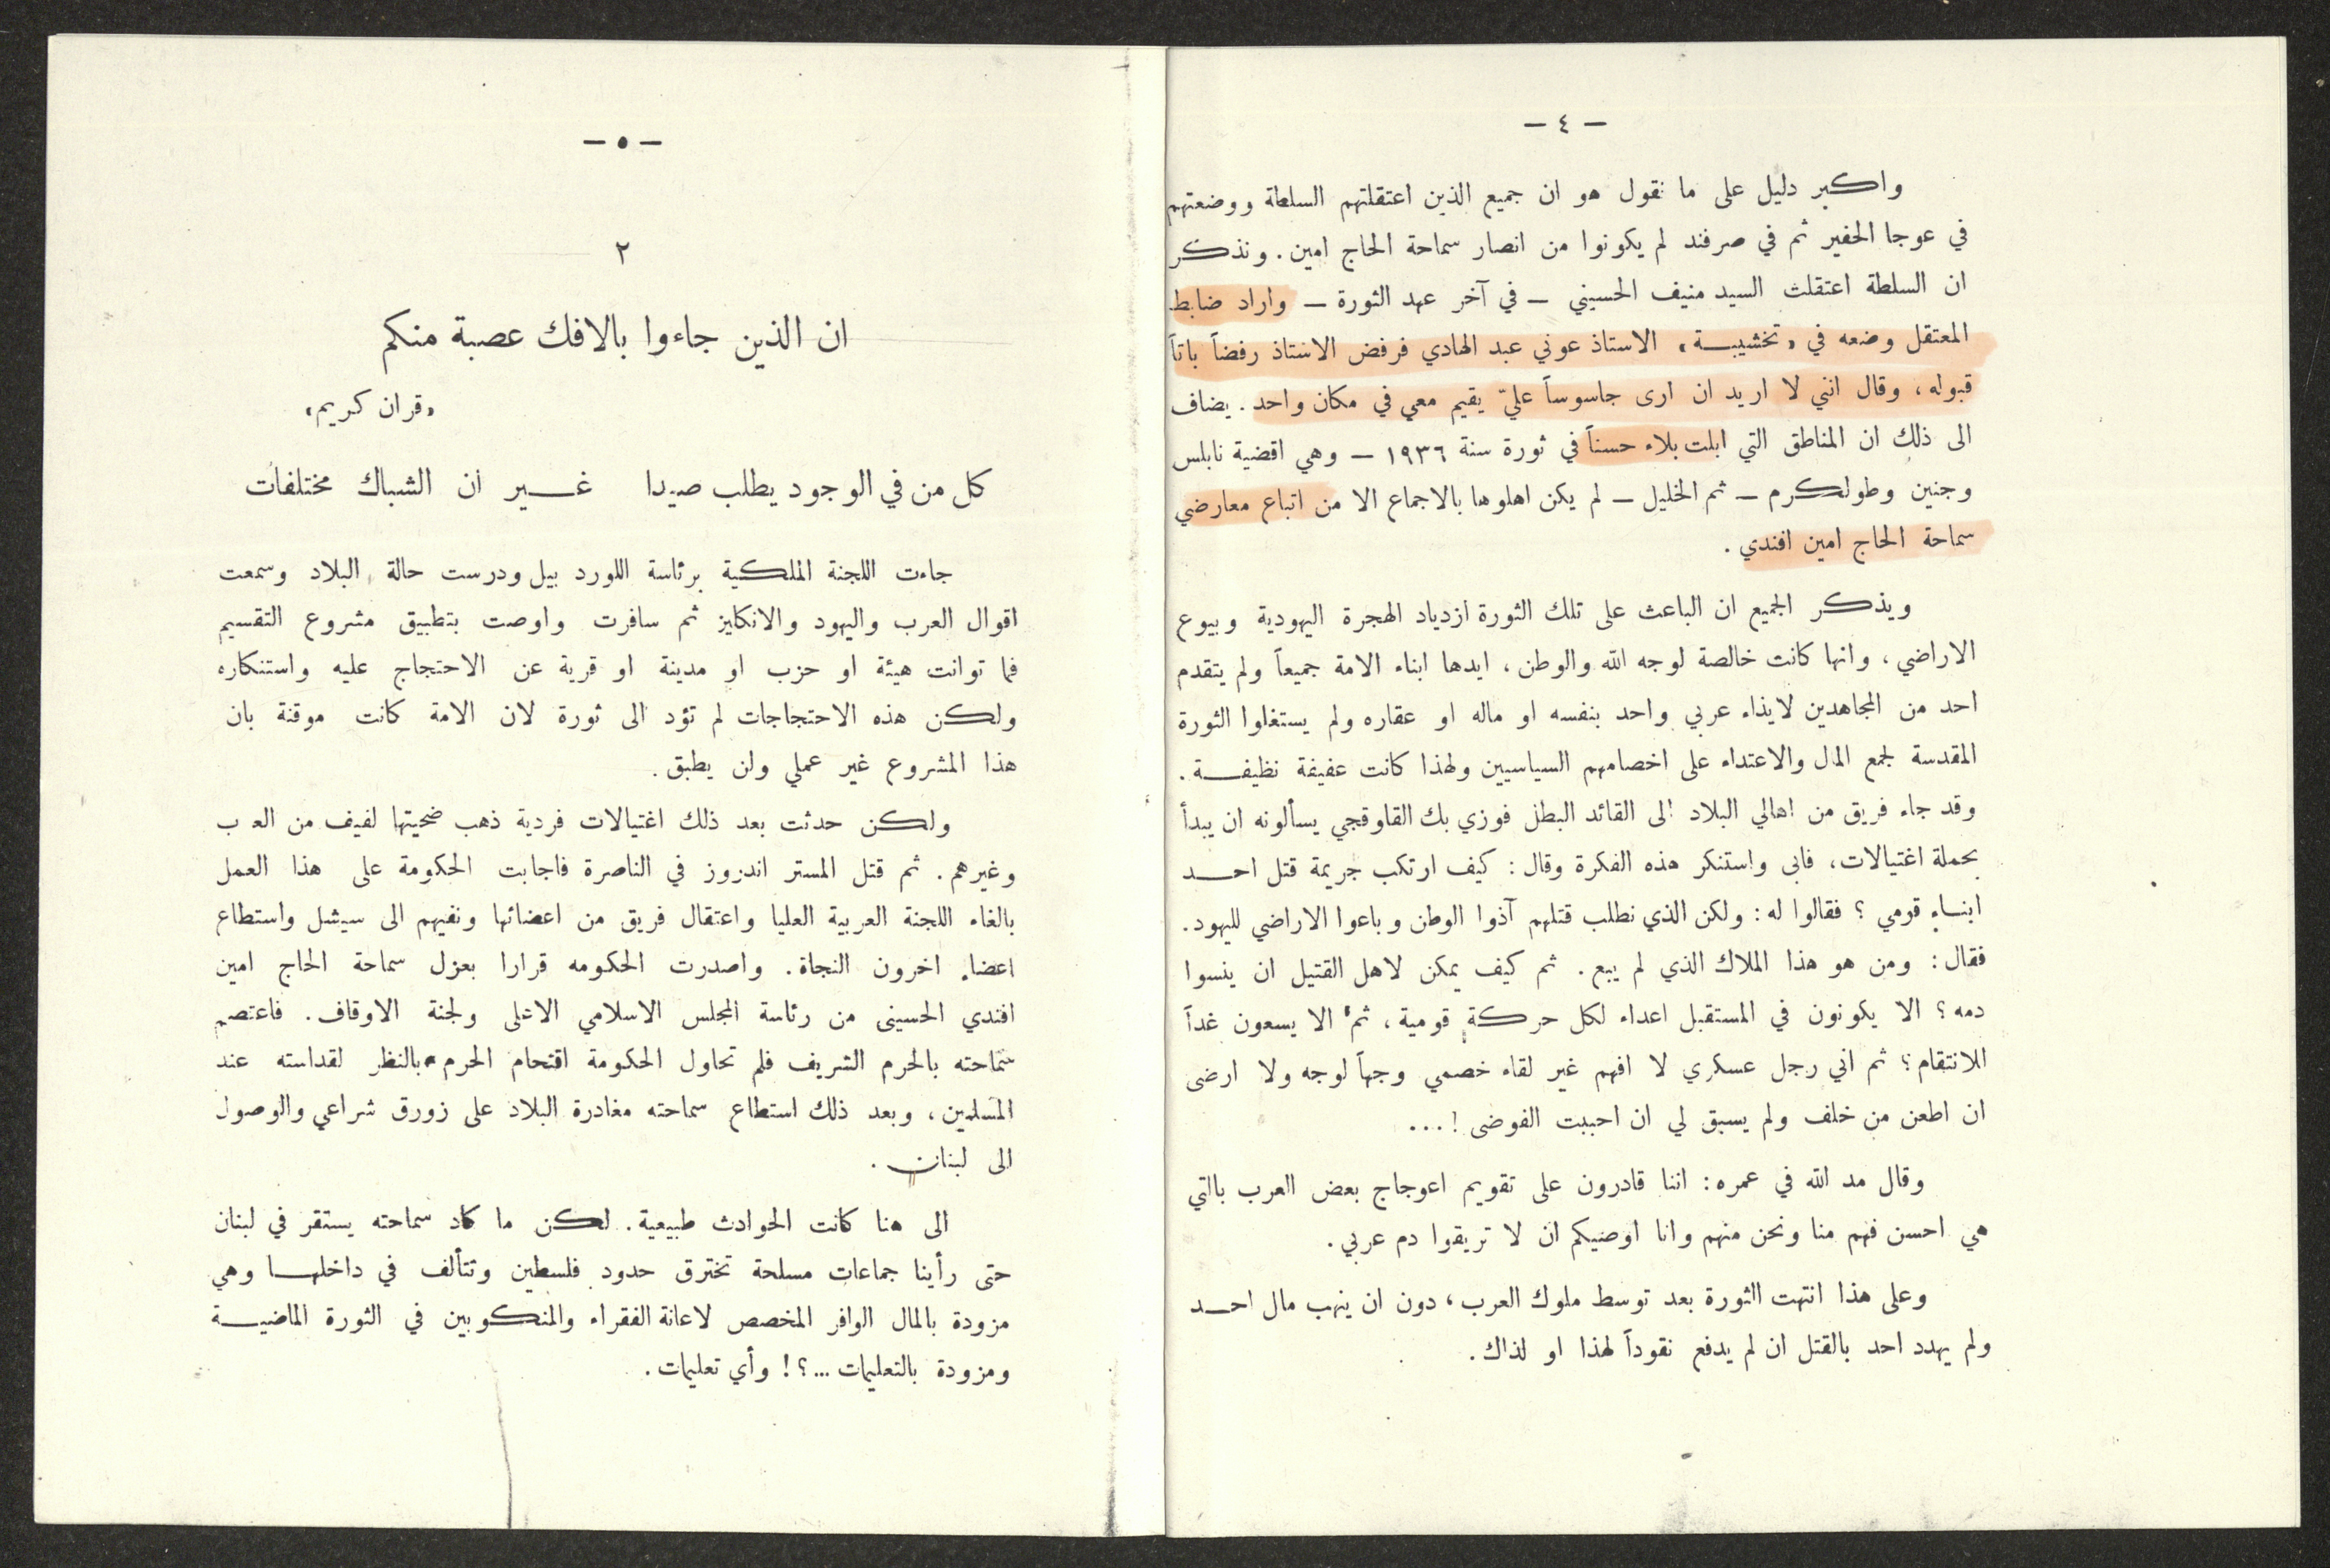 — ٤ —
واكبر دليل على ما نقول هو ان جميع الذين اعتقلتهم السلطة ووضعتهم
في عوجا الحفير ثم في صرفند لم يكونوا من انصار سماحة الحاج امين . ونذكر
ان السلطة اعتقلت السيد منيف الحسيني — في آخر عهد الثورة — واراد ضابط
المعتقل وضعه في «تخشيبة» الاستاذ عوني عبد الهادي فرفض الاستاذ رفضاً باتاً
قبوله ، وقال انني لا اريد ان ارى جاسوساً عليّ يقيم معي في مكان واحد . يضاف
الى ذلك ان المناطق التي ابلت بلاء حسناً في ثورة سنة ١٩٣٦ — وهي اقضية نابلس
وجنين وطولكرم — ثم الخليل — لم يكن اهلوها بالاجماع الا من اتباع معارضي
سماحة الحاج امين افندي .
ويذكر الجميع ان الباعث على تلك الثورة ازدياد الهجرة اليهودية وبيوع
الاراضي ، وانها كانت خالصة لوجه الله والوطن ، ايدها ابناء الامة جميعاً ولم يتقدم
احد من المجاهدين لايذاء عربي واحد بنفسه او ماله او عقاره ولم يستغلوا الثورة
المقدسة لجمع المال والاعتداء على اخصامهم السياسيين ولهذا كانت عفيفة نظيفة .
وقد جاء فريق من اهالي البلاد الى القائد البطل فوزي بك القاوقجي يسألونه ان يبدأ
بحملة اغتيالات ، فابى واستنكر هذه الفكرة وقال : كيف ارتكب جريمة قتل احد
ابناء قومي ؟ فقالوا له : ولكن الذي نطلب قتلهم آذوا الوطن وباعوا الاراضي لليهود .
فقال : ومن هو هذا الملاك الذي لم يبع . ثم كيف يمكن لاهل القتيل ان ينسوا
دمه ؟ الا يكونون في المستقبل اعداء لكل حركة قومية ، ثم الا يسعون غداً
للانتقام ؟ ثم اني رجل عسكري لا افهم غير لقاء خصمي وجهاً لوجه ولا ارضى
ان اطعن من خلف ولم يسبق لي ان احببت الفوضى ! ...
وقال مد الله في عمره : اننا قادرون على تقويم اعوجاج بعض العرب بالتي
هي احسن فهم منا ونحن منهم وانا اوصيكم ان لا تريقوا دم عربي .
وعلى هذا انتهت الثورة بعد توسط ملوك العرب ، دون ان ينهب مال احد
ولم يهدد احد بالقتل ان لم يدفع نقوداً لهذا او لذاك .
— ٥ —
٢
ان الذين جاءوا بالافك عصبة منكم
«قران كريم»
كل من في الوجود يطلب صيدا غير ان الشباك مختلفات
جاءت اللجنة الملكية برئاسة اللورد بيل ودرست حالة البلاد وسمعت
اقوال العرب واليهود والانكليز ثم سافرت واوصت بتطبيق مشروع التقسيم
فما توانت هيئة او حزب او مدينة او قرية عن الاحتجاج عليه واستنكاره
ولكن هذه الاحتجاجات لم تؤد الى ثورة لان الامة كانت موقنة بان
هذا المشروع غير عملي ولن يطبق .
ولكن حدثت بعد ذلك اغتيالات فردية ذهب ضحيتها لفيف من العرب
وغيرهم . ثم قتل المستر اندروز في الناصرة فاجابت الحكومة على هذا العمل
بالغاء اللجنة العربية العليا واعتقال فريق من اعضائها ونفيهم الى سيشل واستطاع
اعضاء اخرون النجاة . واصدرت الحكومه قرارا بعزل سماحة الحاج امين
افندي الحسيني من رئاسة المجلس الاسلامي الاعلى ولجنة الاوقاف . فاعتصم
سماحته بالحرم الشريف فلم تحاول الحكومة اقتحام الحرم بالنظر لقداسته عند
المسلمين ، وبعد ذلك استطاع سماحته مغادرة البلاد على زورق شراعي والوصول
الى لبنان .
الى هنا كانت الحوادث طبيعية . لكن ما كاد سماحته يستقر في لبنان
حتى رأينا جماعات مسلحة تخترق حدود فلسطين وتتألف في داخلها وهي
مزودة بالمال الوافر المخصص لاعانة الفقراء والمنكوبين في الثورة الماضية
ومزودة بالتعليمات ...؟! وأي تعليمات .